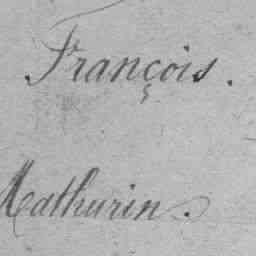 François.
Mathurin.